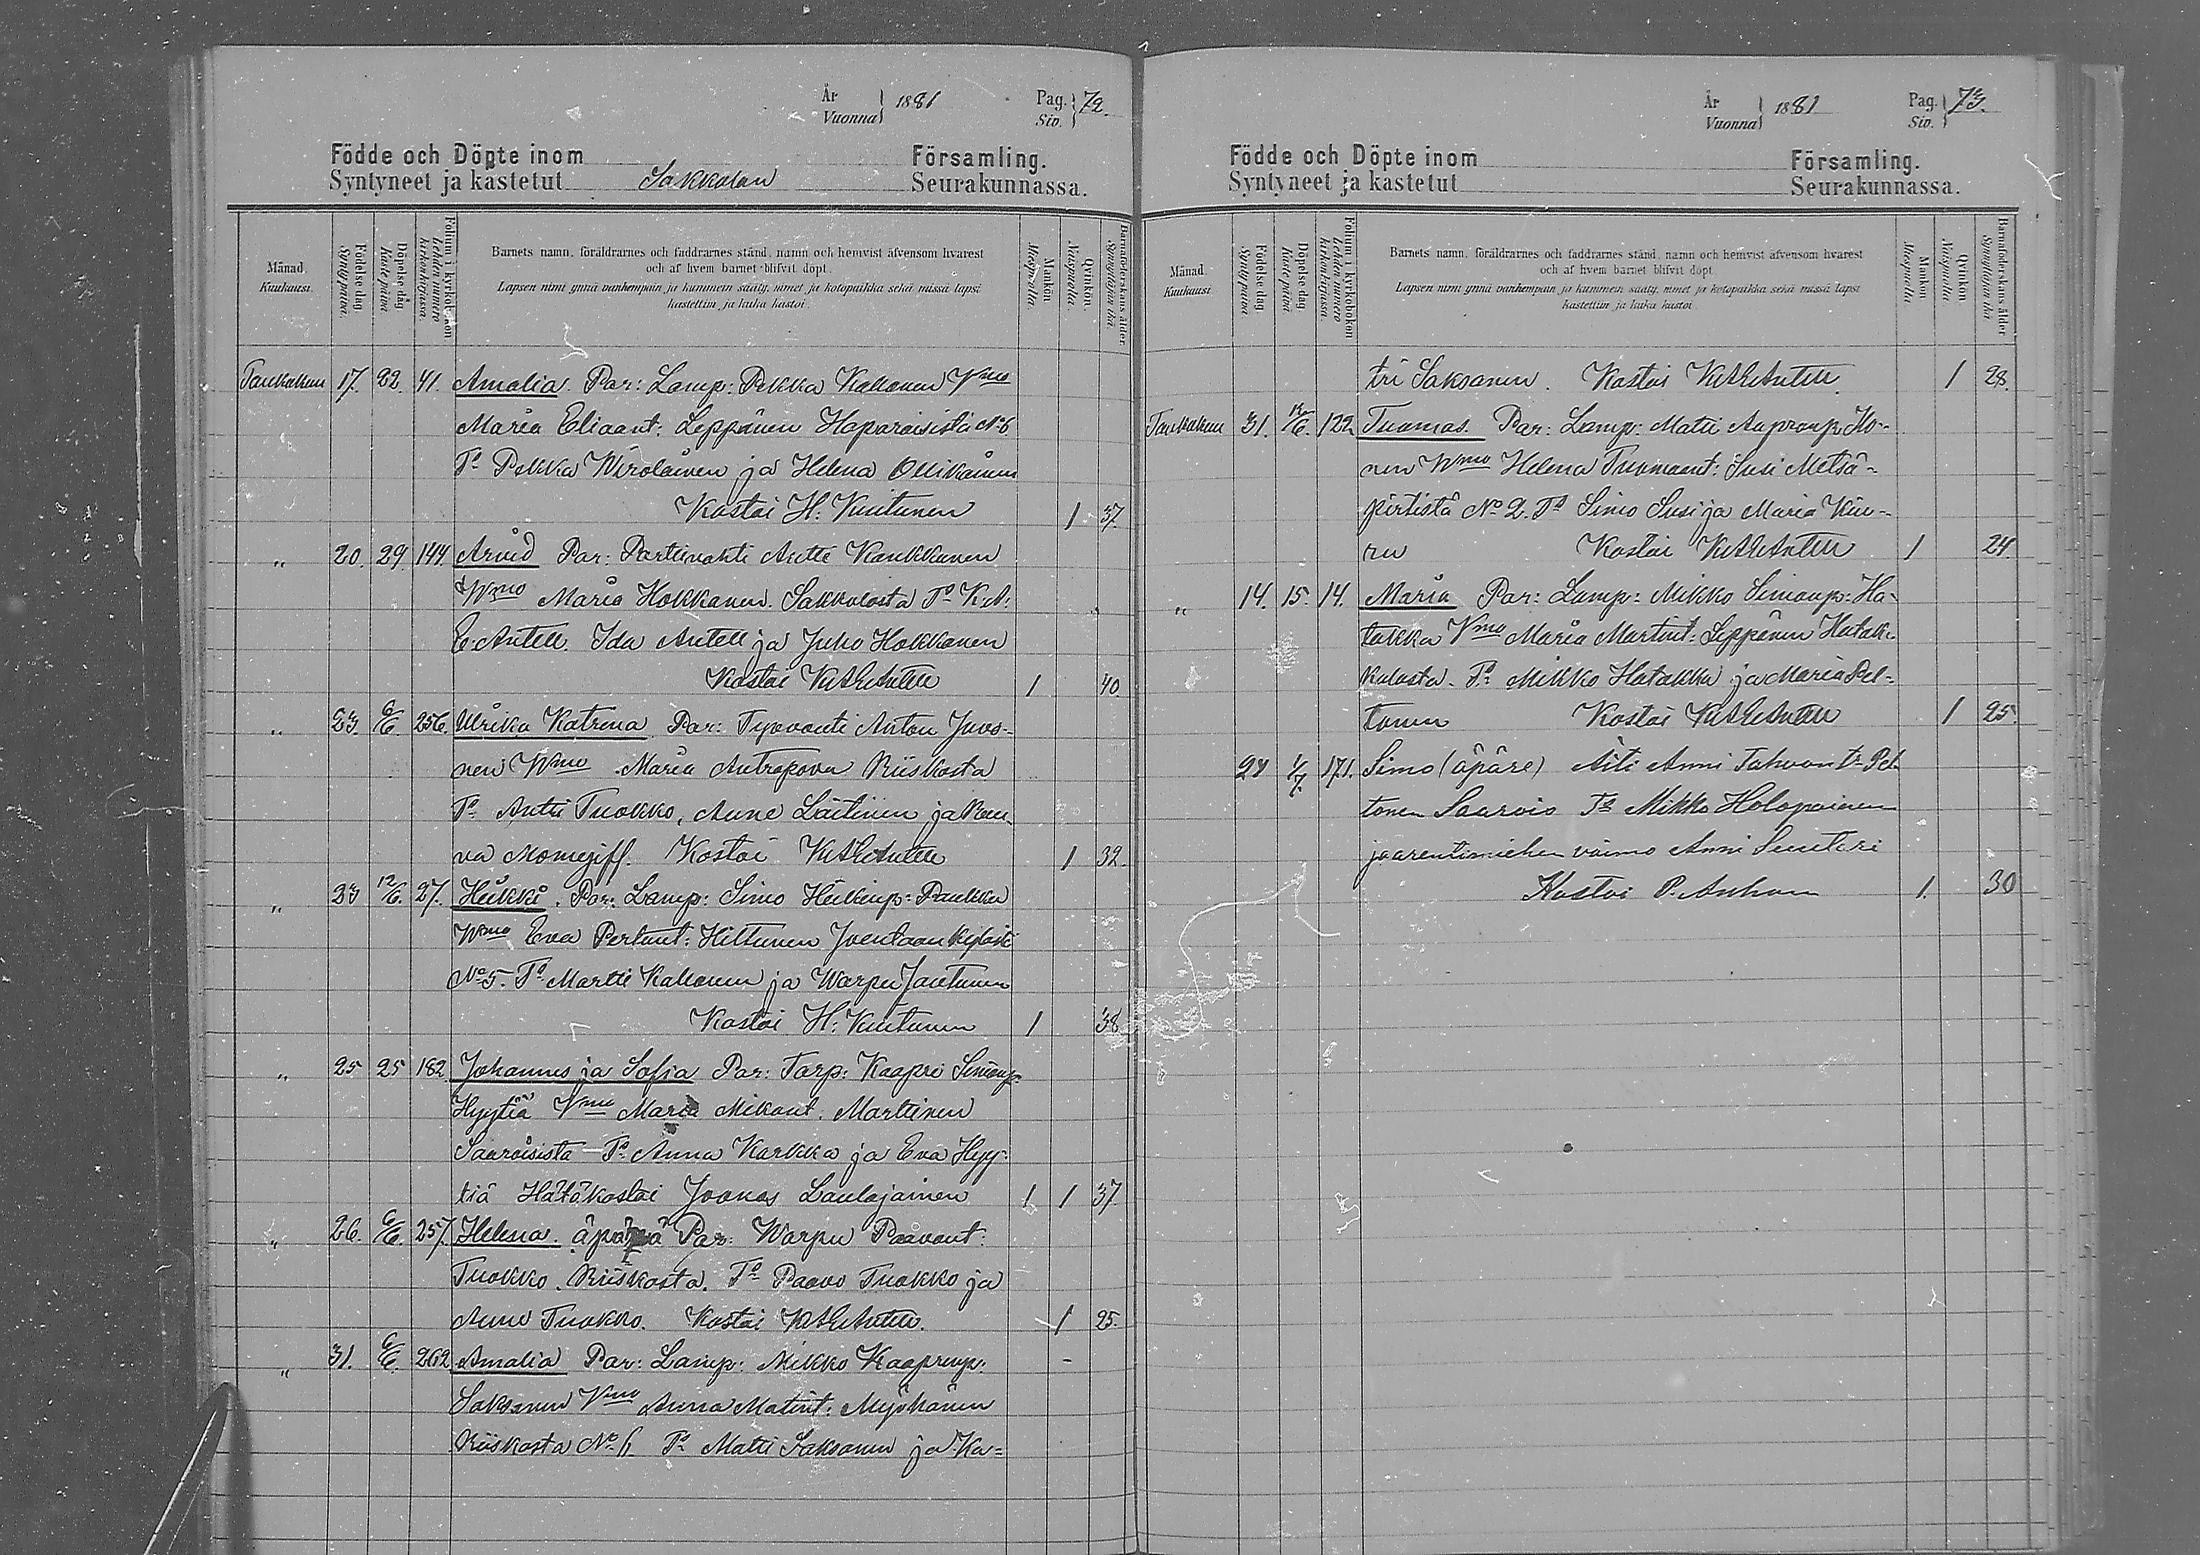 År
Vuonna } 1881 Pag.
Siv. } 72.
Födde och Döpte inom Församling.
Syntyneet ja kastetut Sakkolan Seurakunnassa.
Månad.
Kuukausi.
Födelse dag
Syntypäivä.
Döpelse dag
Kastepäivä
Folium i kyrkobokon
Lehden numero
kirkonkirjassa.
Barnets namn, föräldrarnes och faddrarnes stånd, namn och hemvist äfvensom hvarest
och af hvem barnet blifvit döpt.
Lapsen nimi ynnä vanhempain ja kummein sääty, nimet ja kotopaikka sekä missä lapsi
kastettiin ja kuka kastoi.
Mankön
Miespuolia.
Qvinkön.
Naispuolia
Barnaföderskans ålder
Synnyttäjän ikä
Toukokuu 17. 22. 41. Amalia. Par: Lamp: Pekka Kallonen Vmo
Maria Eliaant: Leppänen Haparaisista No 6
To Pekka Wirolainen ja Helena Ollikainen
Kastoi H: Kuitunen 1 37.
" 20. 29. 144. Arvid Par: Porttivahti Antti Kaukkanen
Wmo Maria Hokkanen. Sakkolasta To K. A:
E. Antell. Ida Antell ja Juho Hokkanen
Kastoi K. A. E. Antell 1 40
" 23. 6/6. 256. Ulrika Katrina Par: Työvouti Anton Juvo-
nen Wmo Maria Antropova Riiskasta
To Antti Tuokko, Anne Läitinen ja Rou
va Momegiff. Kastoi K. A. E. Antell 1 32.
" 23 12/6. 27. Heikki. Par: Lamp: Simo Heikinp: Paukku
Wmo Eva Pertunt: Hiltunen Joentaan kylästä
No 5. To Martti Kallonen ja Warpu Jantunen
Kastoi H: Kuitunen 1 38
" 25 25 182 Johannes ja Sofia Par: Torp: Kaapri Simonp
Hyytiä Vmo Maria Mikont. Martinen
Saaroisista To Anna Karkka ja Eva Hyy-
tiä Hätäkastoi Joonas Laulajainen 1 1 37.
" 26. 6/6. 257. Helena. äpärä Par: Warpu Paavont:
Tuokko. Riiskasta. To Paavo Tuokko ja
Anne Tuokko. Kastoi K. A. E. Antell. 1 25.
" 31. 6/6. 262 Amalia Par: Lamp: Mikko Kaaprinp. -
Saksanen Vmo Anna Matint: Myöhänen
Riiskasta No 6 To Matti Saksanen ja Ka=
År
Vuonna } 1881. Pag.
Siv. } 73.
Födde och Döpte inom Församling.
Syntyneet ja kastetut Seurakunnassa.
Månad.
Kuukausi.
Födelse dag
Syntypäivä
Döpelse dag
Kastepäivä
Folium i kyrkobokon
Lehden numero
kirkonkirjassa.
Barnets namn, föräldrarnes och faddrarnes stånd, namn och hemvist äfvensom hvarest
och af hvem barnet blifvit döpt.
Lapsen nimi ynnä vanhempain ja kummein sääty, nimet ja kotopaikka sekä missä lapsi
kastettiin ja kuka kastoi
Mankön
Miespuolia.
Qvinkön
Naispuolia
Barnaföderskans ålder
Synnyttäjän ikä
tri Saksanen. Kastoi K. A. E. Antell 1 28.
Toukokuu 31. 12/6. 122 Tuomas. Par: Lamp: Matti Aapronp Ho-
nen Wmo Helena Tuomaant: Susi Metsä-
pirtistä No 2. To Simo Susi ja Maria Kiu-
ru Kastoi K. A. E. Antell 1 24
" 14. 15. 14. Maria Par: Lamp: Mikko Simonp: Ha-
takka Vmo Maria Martint: Leppänen Hatak-
kalasta. To Mikko Hatakka ja Maria Pel-
tonen Kastoi K. A. E. Antell 1 25
24 1/7. 171. Simo (äpäre) Äiti Anni Tahvontr Pel
tonen Saarois To Mikko Holopainen
ja arentimiehen vaimo Anni Suuteri
Kastoi P. Anhom 1. 30